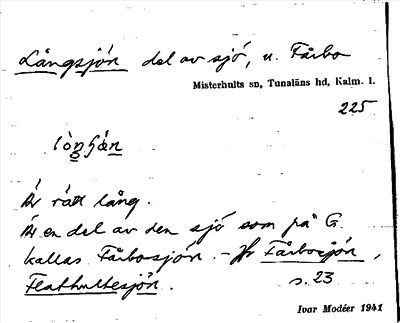 Långsjón del av sjö, u. Fårbo
Misterhults sn, Tunaläns hd, Kalm. l.
225
Är rätt lång.
Är en del av den sjö som på G.
kallas Fårbosjön. - Jfr Fårbosjön,
Flathultesjön. s. 23
Ivar Modéer 1941